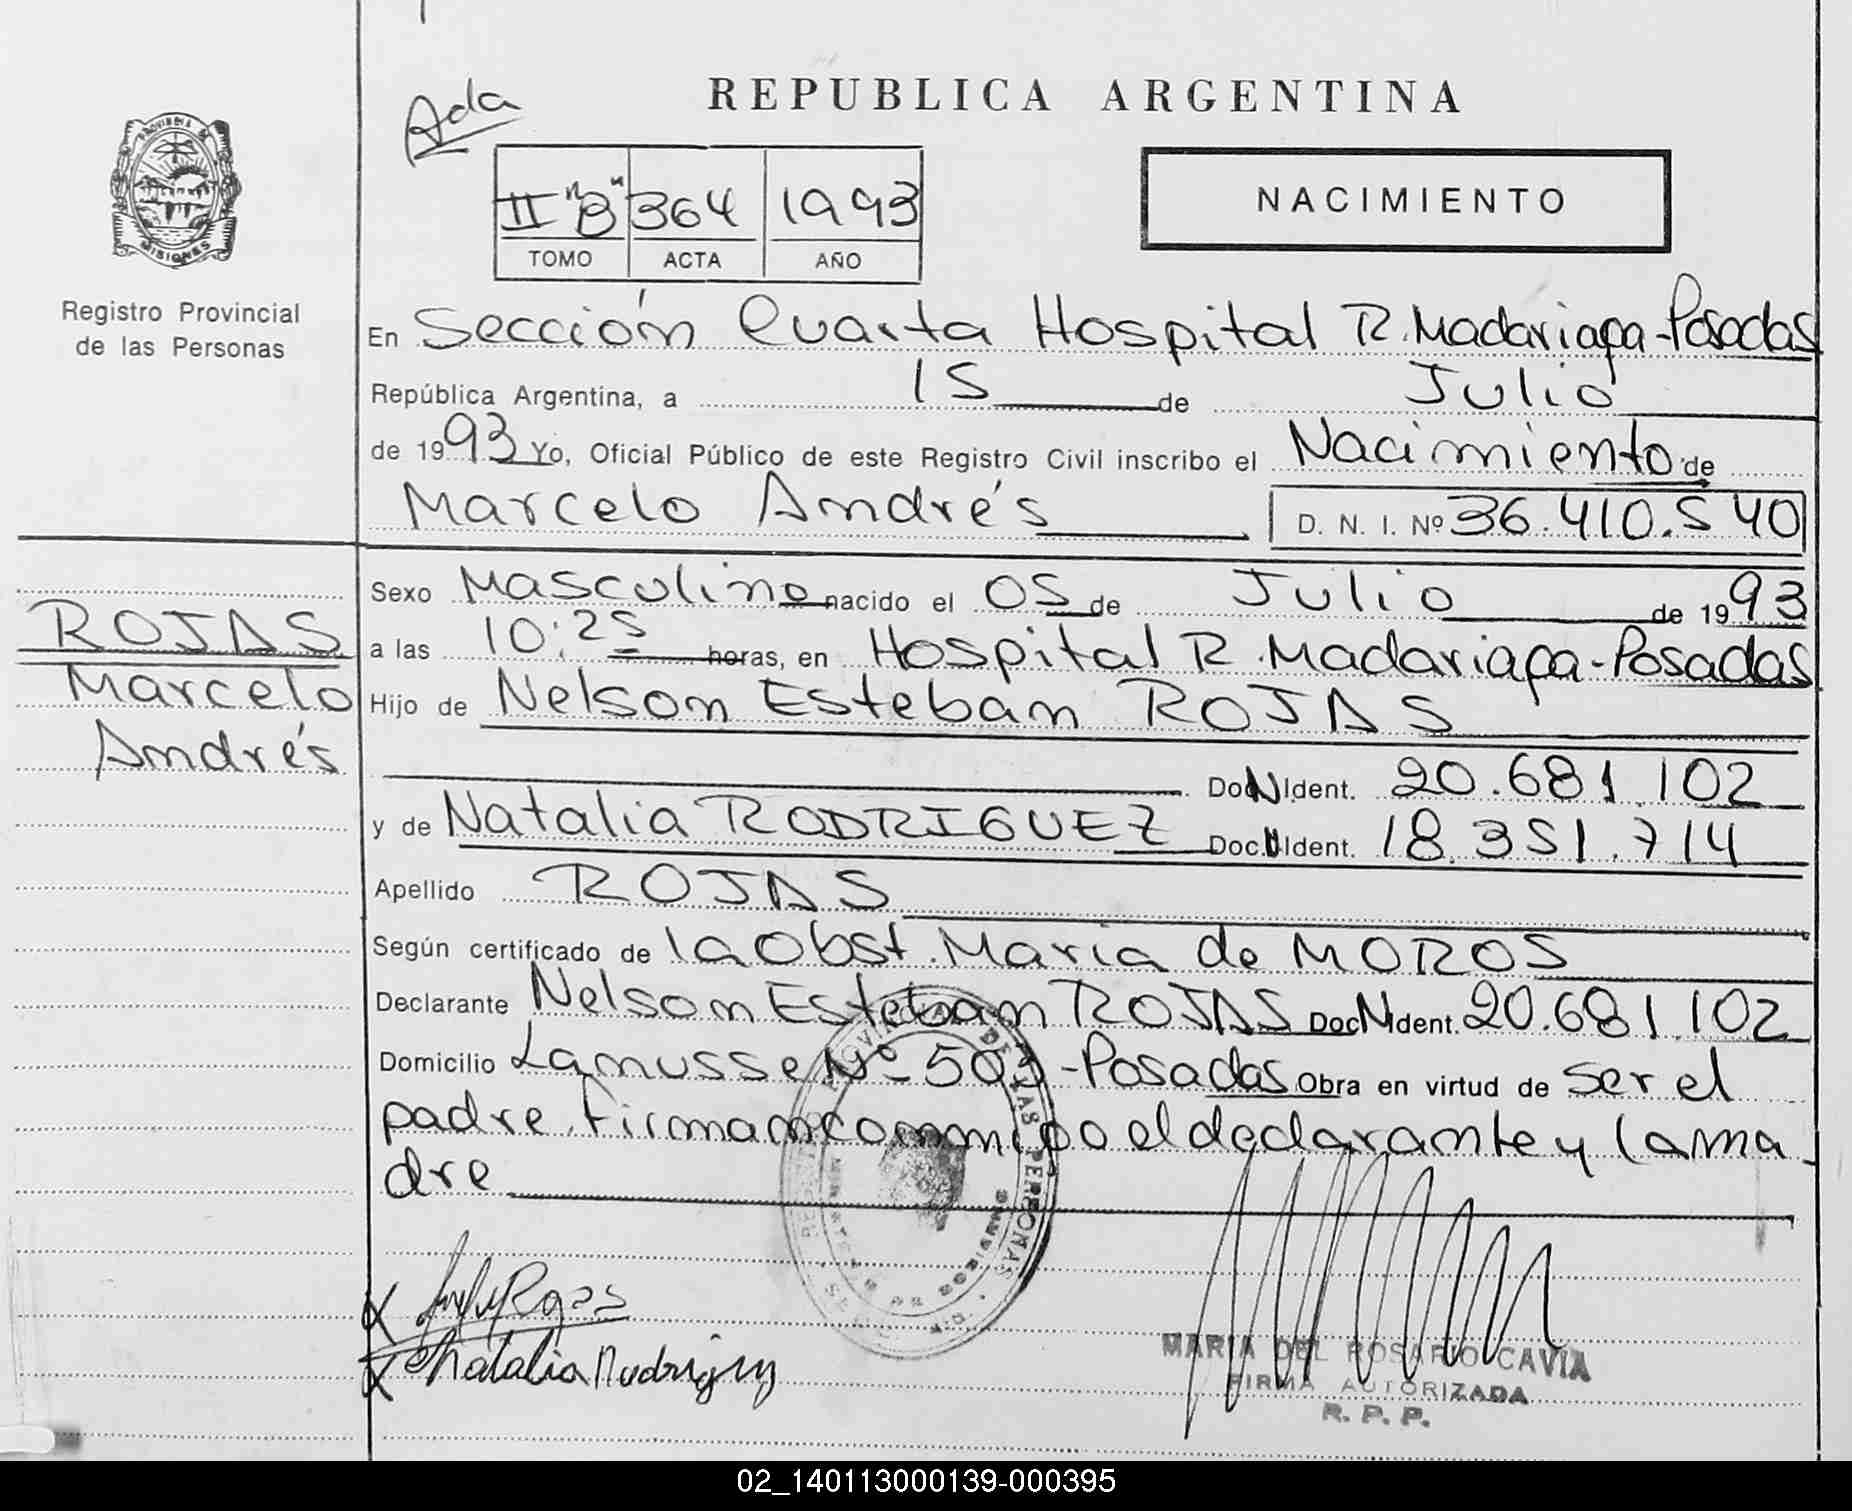 Ada
REPUBLICA ARGENTINA
PROVINCIA DE
MISIONES
Registro Provincial
de las Personas
II "B" 364 1993
TOMO ACTA AÑO
NACIMIENTO
En Sección Cuarta Hospital R. Madariaga - Posadas
República Argentina, a 15 de Julio
de 1993 Yo, Oficial Público de este Registro Civil inscribo el Nacimiento de
Marcelo Andrés D. N. I. Nº 36.410.540
ROJAS
Marcelo
Andrés
Sexo Masculino nacido el 05 de Julio de 1993
a las 10:25 horas, en Hospital R. Madariaga - Posadas
Hijo de Nelson Esteban ROJAS
Doc. N Ident. 20.681.102
y de Natalia RODRIGUEZ Doc. N Ident. 18.351.714
Apellido ROJAS
Según certificado de la Obst. Maria de MOROS
Declarante Nelson Esteban ROJAS Doc N Ident. 20.681.102
Domicilio Lamusse Nº 503 - Posadas Obra en virtud de ser el
padre. Firman conmigo el declarante y la ma-
dre
DE LAS PERSONAS
Natalia Rodriguez
MARIA DEL ROSARIO CAVIA
FIRMA AUTORIZADA
R. P. P.
02_140113000139-000395